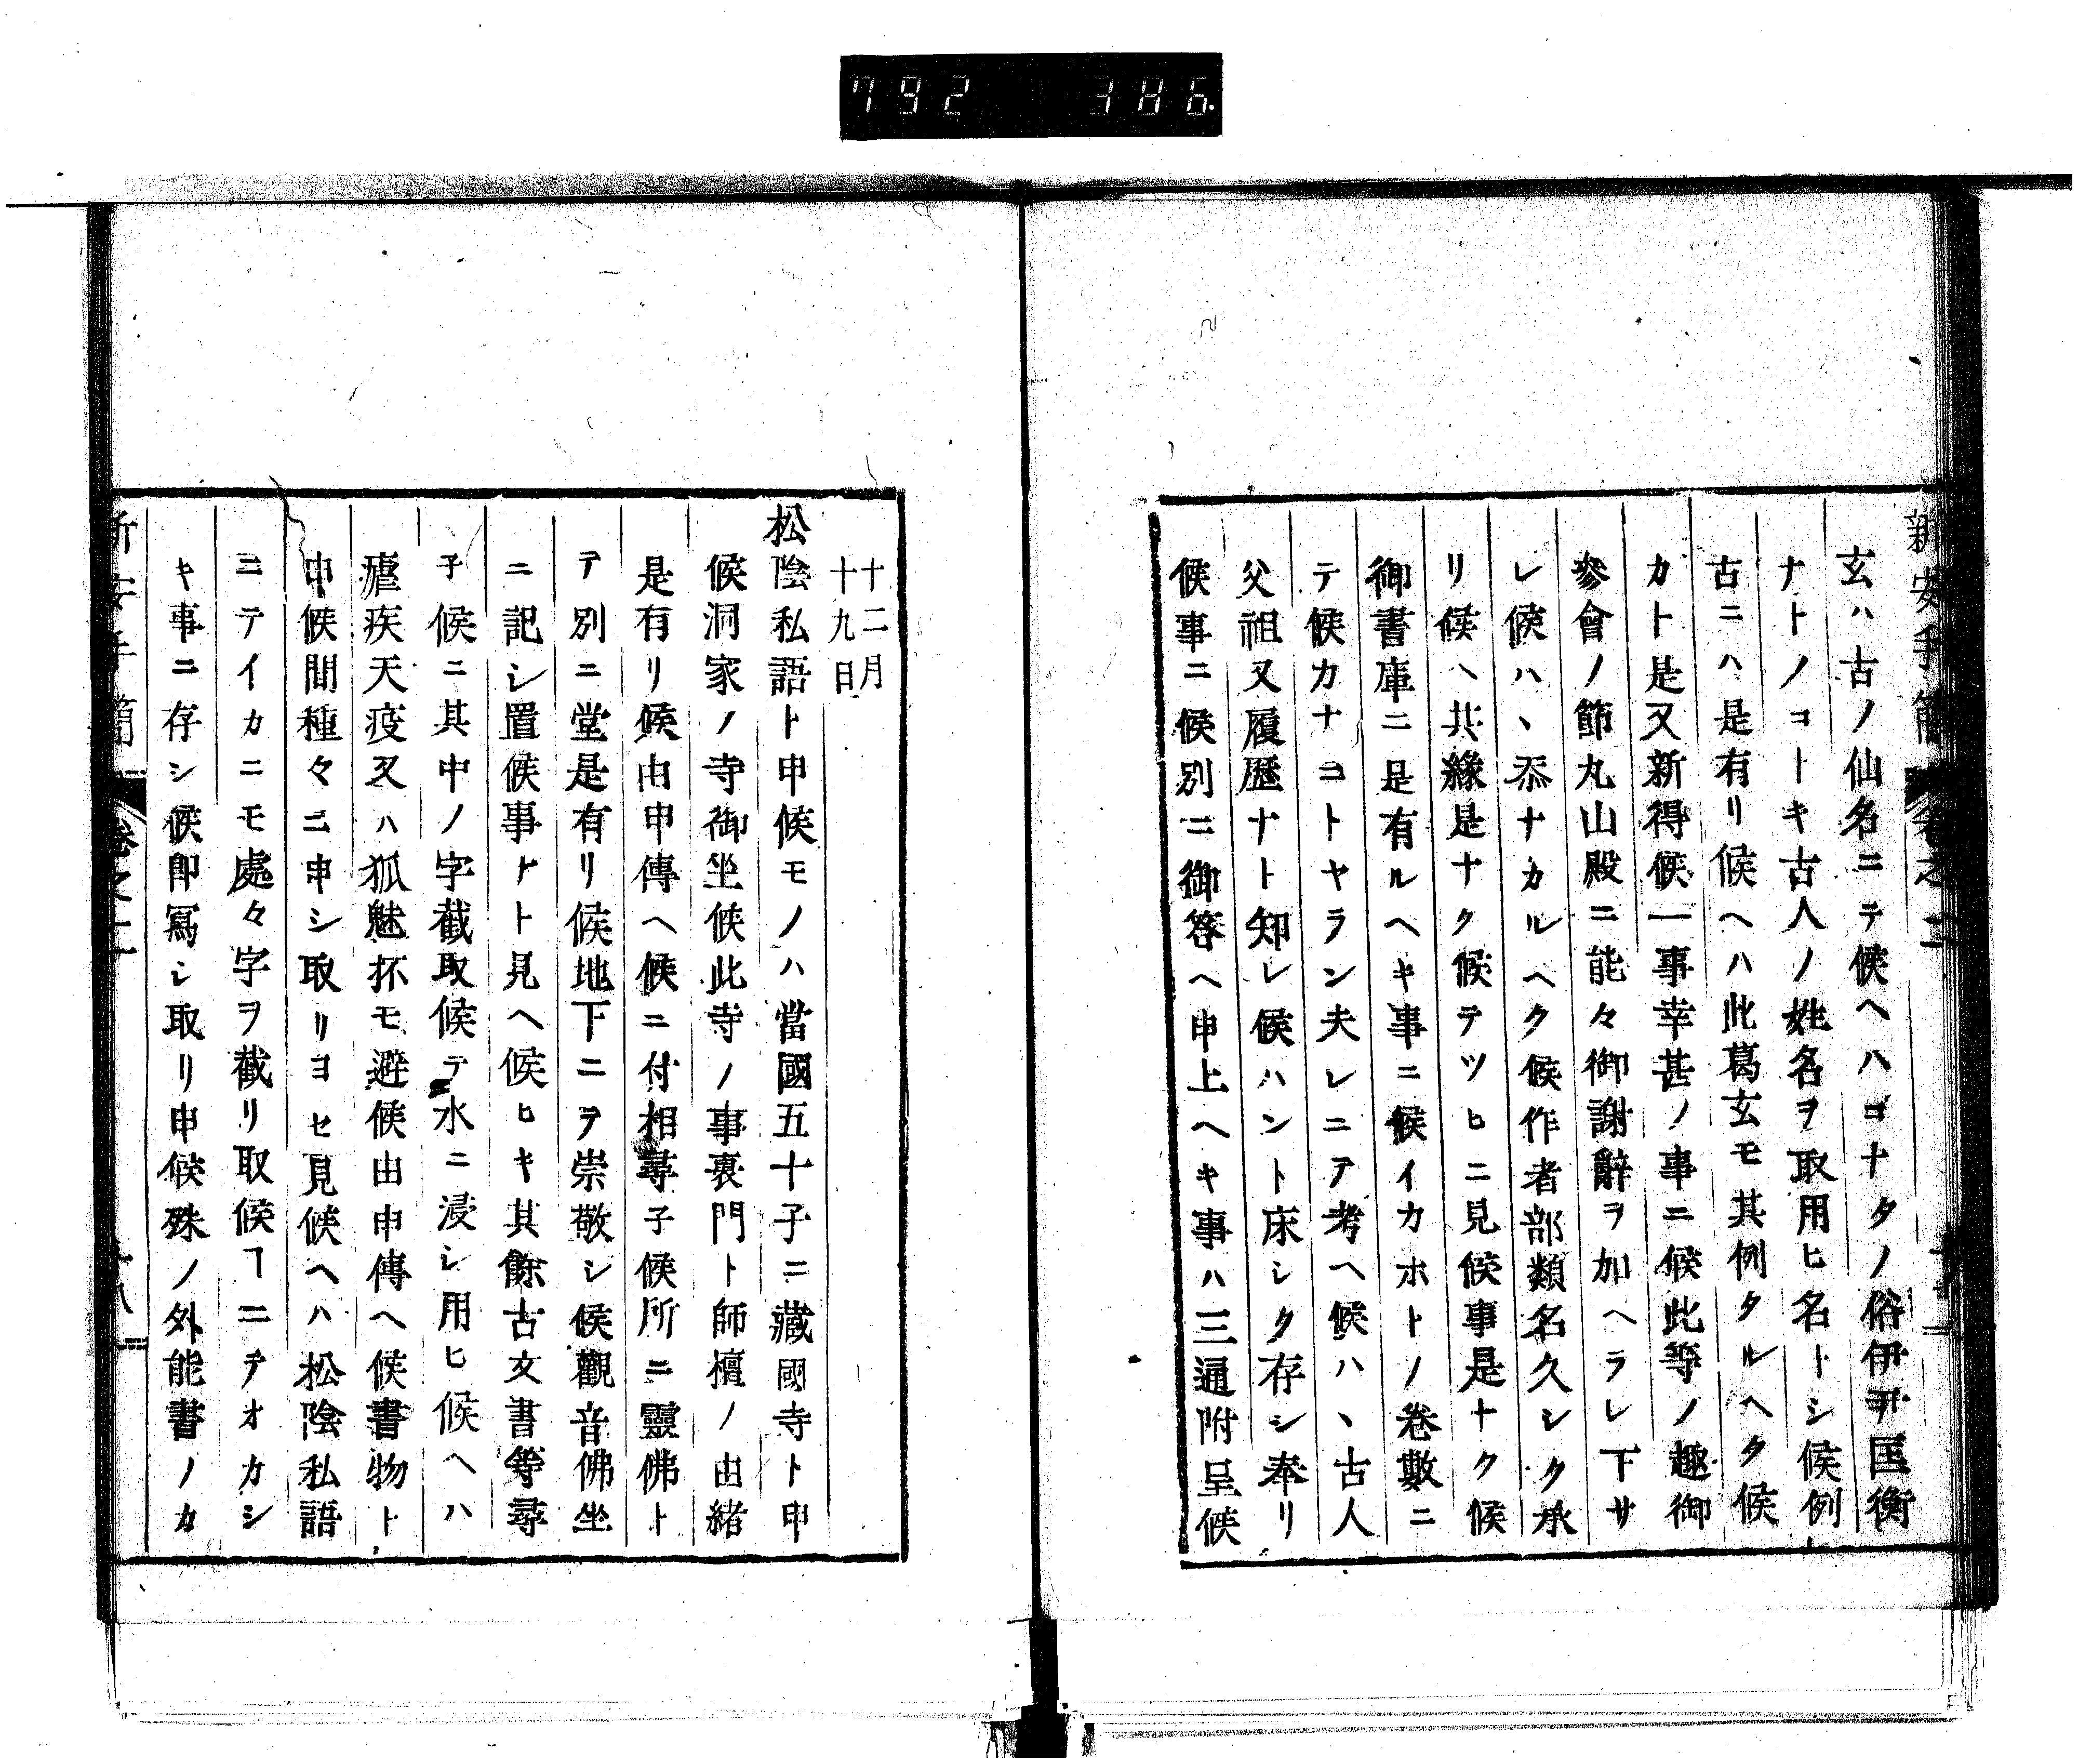 792 386
新安手簡 卷之二
玄ハ古ノ仙名ニテ候ヘハゴナタノ俗伊尹匡衡
ナトノコトキ古人ノ姓名ヲ取用ヒ名トシ候例ト
古ニハ是有リ候ヘハ此葛玄モ其例タルヘク候
カト是又新得候一事幸甚ノ事ニ候此等ノ趣御
參會ノ節丸山殿ニ能々御謝辭ヲ加ヘラレ下サ
レ候ハヽ忝ナカルヘク候作者部類名久シク承
リ候ヘ共緣是ナク候テツヒニ見候事是ナク候
御書庫ニ是有ルヘキ事ニ候イカホトノ卷數ニ
テ候カナコトヤラン夫レニテ考ヘ候ハヽ古人
父祖又履歷ナト知レ候ハント床シク存シ奉リ
候事ニ候別ニ御答ヘ申上ヘキ事ハ三通附呈候
十二月
十九日
松陰私語ト申候モノハ當國五十子ニ藏國寺ト申
候洞家ノ寺御坐候此寺ノ事裏門ト師檀ノ由緒
是有リ候由申傳ヘ候ニ付相尋子候所ニ靈佛ト
テ別ニ堂是有リ候地下ニヲ崇敬シ候觀音佛坐
ニ記シ置候事ナト見ヘ候ヒキ其餘古文書等尋
子候ニ其中ノ字截取候テ水ニ浸シ用ヒ候ヘハ
瘧疾天疫又ハ狐魅抔モ避候由申傳ヘ候書物ト
申候間種々ニ申シ取リヨセ見候ヘハ松陰私語
ニテイカニモ處々字ヲ截リ取候ヿニテオカシ
キ事ニ存シ候卽冩シ取リ申候殊ノ外能書ノカ
新安手簡 卷之二 十八